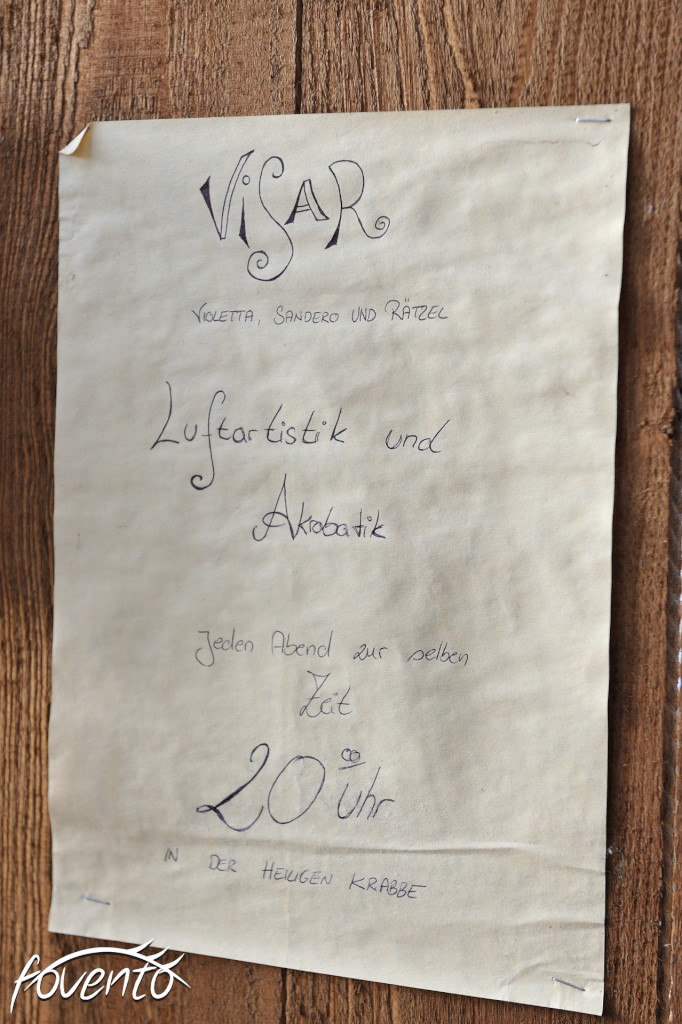 ViSAR
VIOLETTA, SANDERO UND RÄTZEL
Luftartistik und
Akrobatik
Jeden Abend zur selben
Zeit
20 00 Uhr
IN DER HEILIGEN KRABBE
fovento